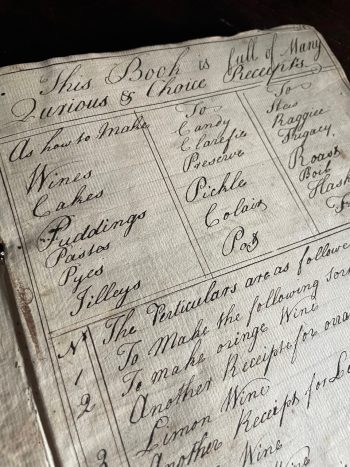 This Book is full of Many
Qurious & Choice Receipts
As how to Make
Wines
Cakes
Puddings
Pastos
Pyes
Jilleys
To
Candy
Clarefie
Preserve
Pickle
Colair
Pot
To
Stew
Raggice
Roast
Boil
Hash
F
The Perticulars are as followe
No
1 To Make the following Sor
2 To make oringe Wine
Another Receipte for ora
3 Limon Wine
Another Receipt for Li
Wine